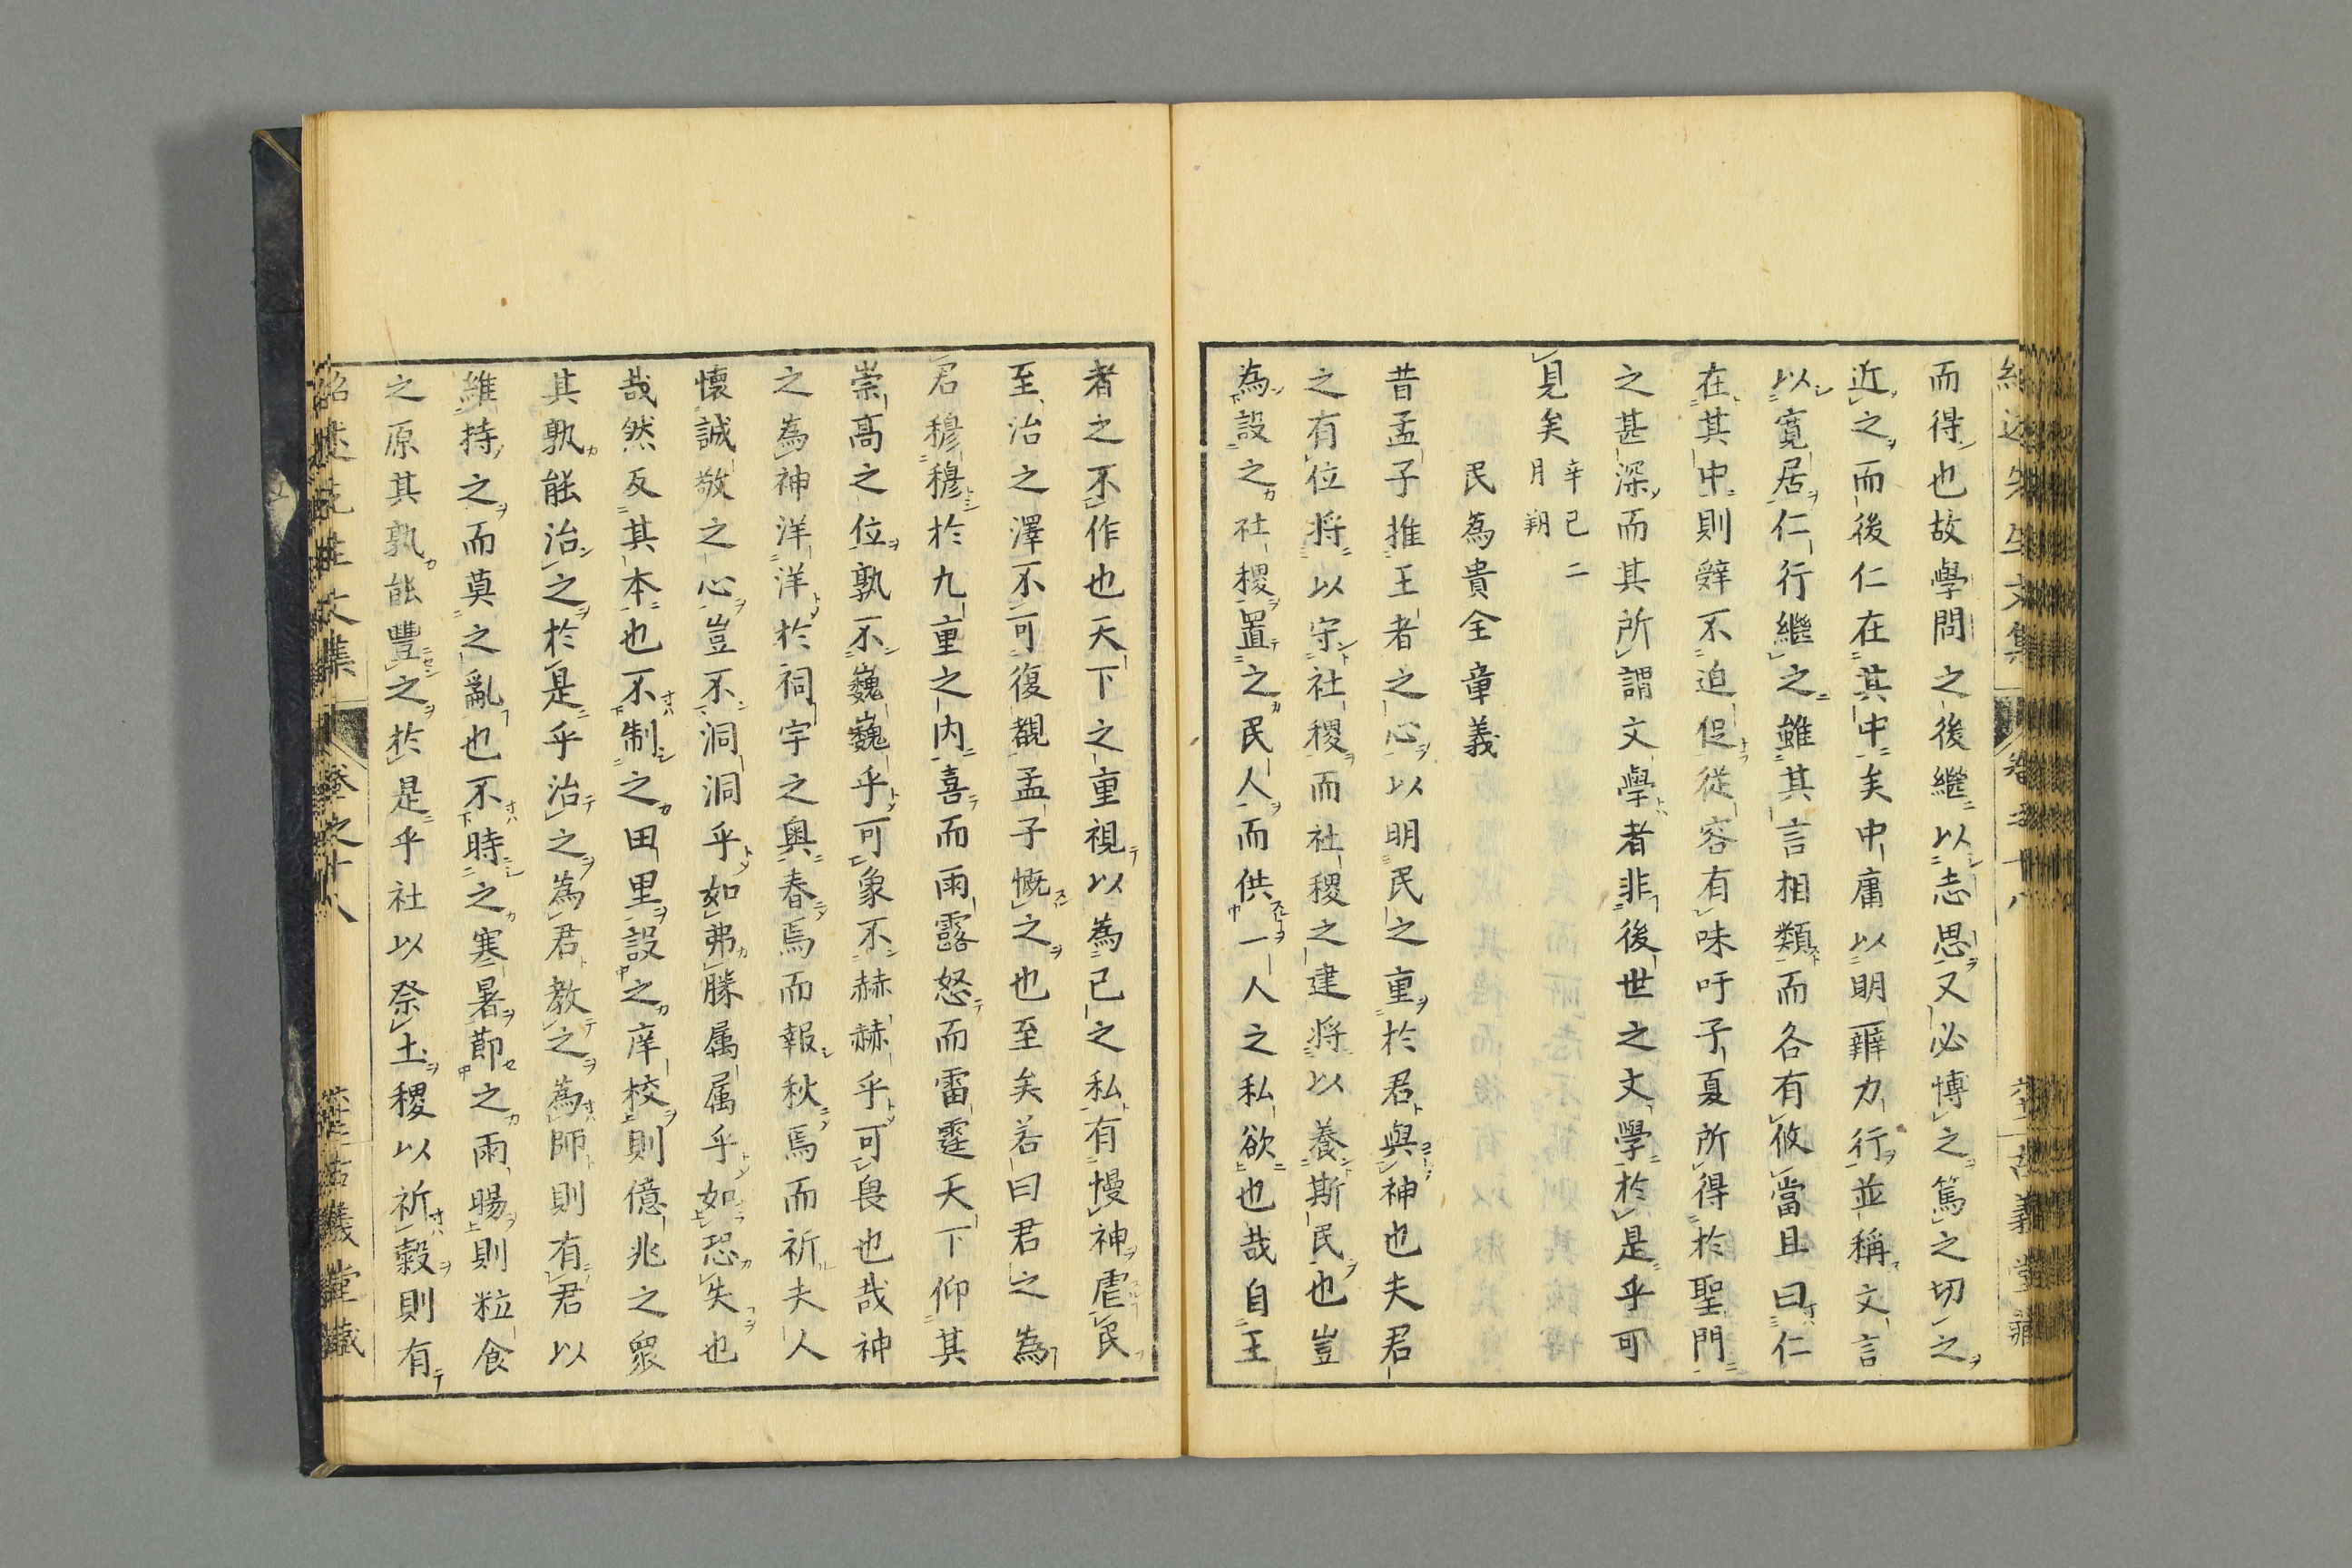 而得也故學問之後繼以志思又必博之篤之切之
近之而後仁在其中矣中庸以明辨力行並稱文言
以寛居仁行繼之雖其言相類而各有攸當且曰仁
在其中則辭不迫促從容有味吁子夏所得於聖門
之甚深而其所謂文學者非後世之文學於是乎可
見矣 辛巳二
月朔
民為貴全章義
昔孟子推王者之心以明民之重於君與神也夫君
之有位将以守社稷而社稷之建将以養斯民也豈
為設之社稷置之民人而供一人之私欲也哉自王
者之不作也天下之重視以為己之私有慢神虐民
至治之澤不可復覩孟子慨之也至矣若曰君之為
君穆穆於九重之内喜而雨露怒而雷霆天下仰其
崇高之位孰不巍巍乎可象不赫赫乎可畏也哉神
之為神洋洋於祠宇之奥春焉而報秋焉而祈夫人
懷誠敬之心豈不洞洞乎如弗勝属属乎如恐失也
哉然反其本也不制之田里設之庠校則億兆之衆
其孰能治之於是乎治之為君教之為師則有君以
維持之而莫之亂也不時之寒暑節之雨暘則粒食
之原其孰能豐之於是乎社以祭土稷以祈穀則有
紹述先生文集 卷之十八 古義堂藏